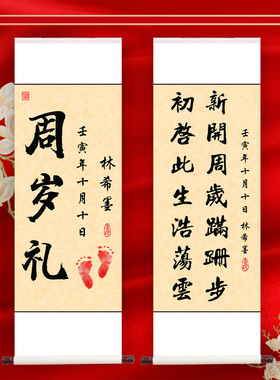 周岁礼
壬寅年十月十日
林希墨
新開周歲蹣跚步
初啓此生浩蕩雲
壬寅年十月十日 林希墨